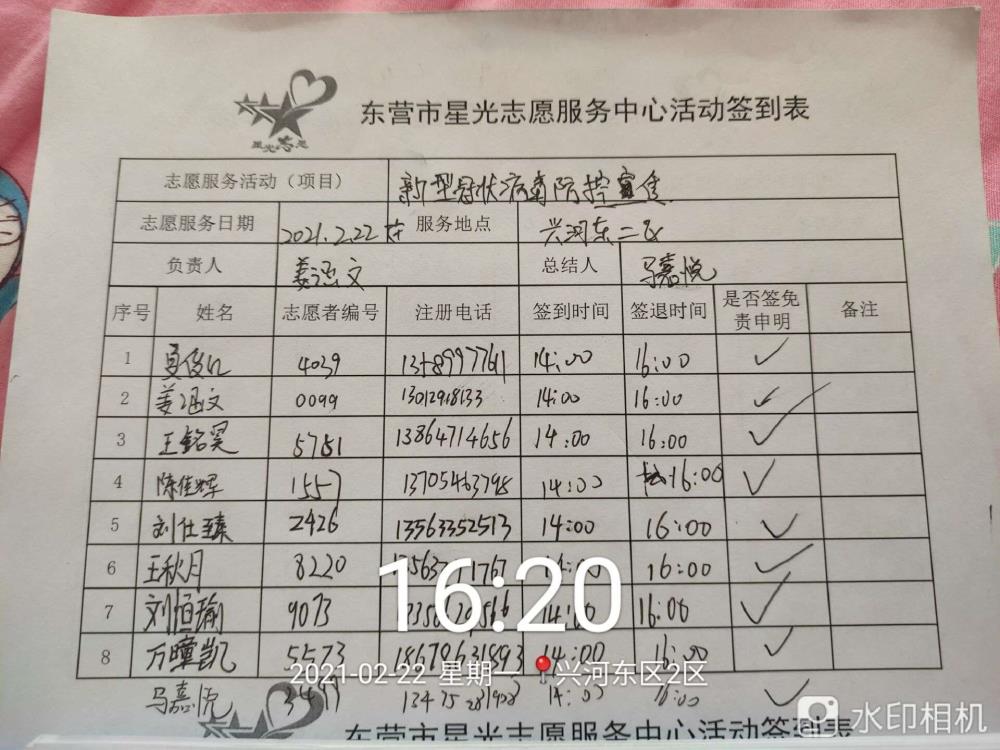 星光志愿
东营市星光志愿服务中心活动签到表
志愿服务活动（项目） 新型冠状病毒防控宣传
志愿服务日期 2021.2.22 服务地点 兴河东二区
负责人 姜涵文 总结人 马嘉悦
序号 姓名 志愿者编号 注册电话 签到时间 签退时间 是否签免责申明 备注
1 4039 14:00 16:00 ✓
2 姜涵文 0099 13012918133 14:00 16:00 ✓
3 王铭昊 5751 13864714656 14:00 16:00 ✓
4 陈佳辉 1557 13705463798 14:00 16:00 ✓
5 刘仕臻 2426 13563352513 14:00 16:00 ✓
6 王秋月 8220 14:00 16:00 ✓
7 刘恒瑜 9073 14:00 16:00 ✓
8 万曈凯 5573 18678631893 14:00 16:00 ✓
马嘉悦 14:00 16:00 ✓
16:20
2021-02-22 星期一 兴河东区2区
东营市星光志愿服务中心活动签到表
水印相机